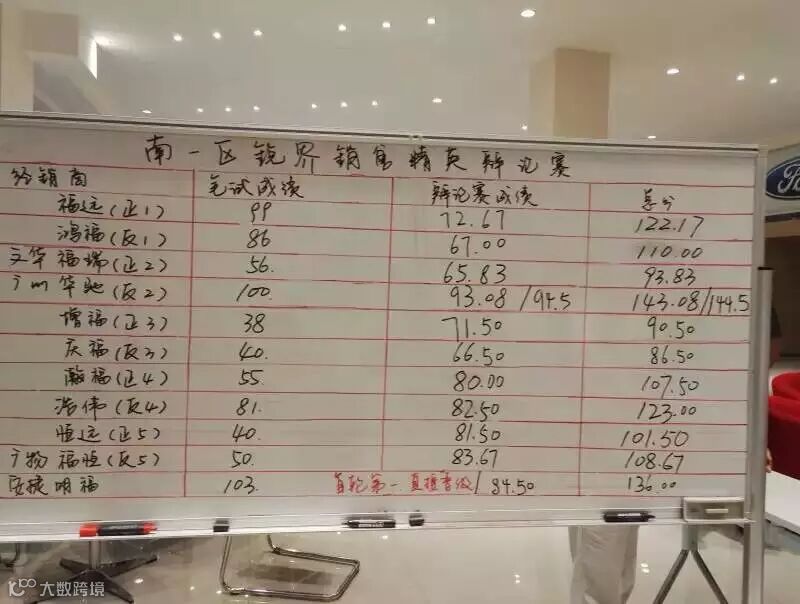 南一区锐界销售精英辩论赛
经销商 笔试成绩 辩论赛成绩 总分
福远(正1) 99 72.67 122.17
鸿福(反1) 86 67.00 110.00
文华福瑞(正2) 56. 65.83 93.83
广州华驰(反2) 100. 93.08/94.5 143.08/144.5
增福(正3) 38 71.50 90.50
庆福(反3) 40. 66.50 86.50
瀚福(正4) 55. 80.00 107.50
浩伟(反4) 81. 82.50 123.00
恒远(正5) 40. 81.50 101.50
广物福恒(反5) 50. 83.67 108.67
安捷明福 103. 首轮第一直接晋级/84.50 136.00
Ford
大数跨境